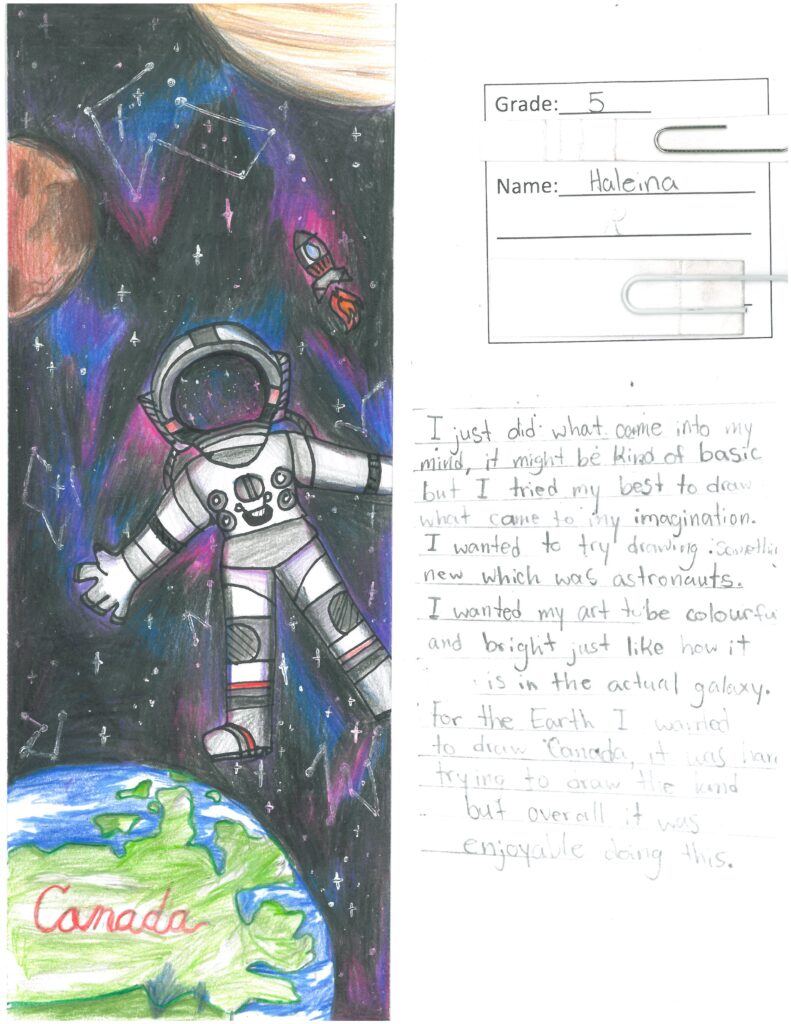 Grade: 5
Name: Haleina
I just did what came into my
mind, it might be kind of basic
but I tried my best to draw
what came to my imagination.
I wanted to try drawing somethin
new which was astronauts.
I wanted my art to be colourfu
and bright just like how it
is in the actual galaxy.
For the Earth I wanted
to draw Canada, it was har
trying to draw the land
but overall it was
enjoyable doing this.
Canada